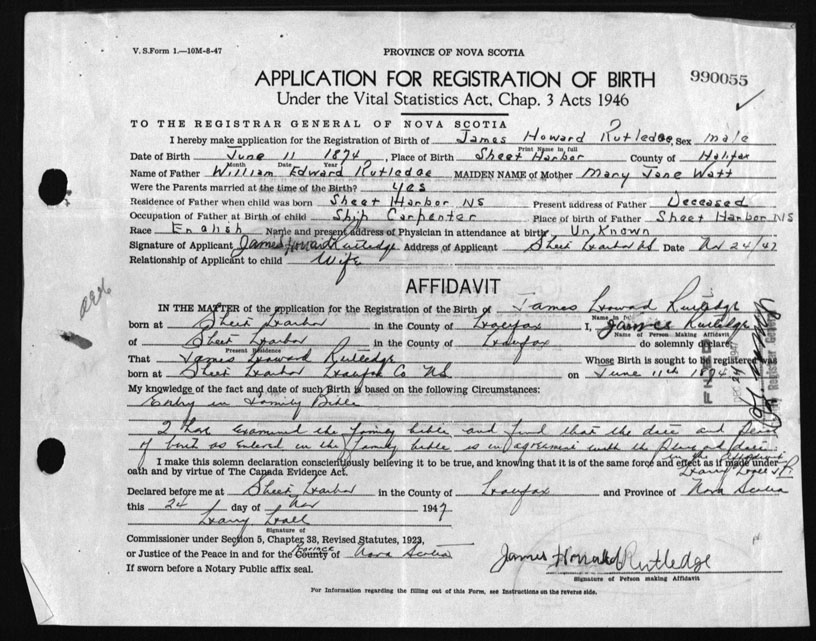 V. S. Form 1.—10M-8-47
PROVINCE OF NOVA SCOTIA
APPLICATION FOR REGISTRATION OF BIRTH
990055
Under the Vital Statistics Act, Chap. 3 Acts 1946
TO THE REGISTRAR GENERAL OF NOVA SCOTIA
I hereby make application for the Registration of Birth of James Howard Rutledge, Sex male
Print Name in full
Date of Birth June 11 1874, Place of Birth Sheet Harbor County of Halifax
Month Date Year
Name of Father William Edward Rutledge MAIDEN NAME of Mother Mary Jane Watt
Were the Parents married at the time of the Birth? yes
Residence of Father when child was born Sheet Harbor NS Present address of Father Deceased
Occupation of Father at Birth of child Ship Carpenter Place of birth of Father Sheet Harbor NS
Race English Name and present address of Physician in attendance at birth Un Known
Signature of Applicant James Howard Rutledge Address of Applicant Sheet Harbor NS Date Nov 24/47
Relationship of Applicant to child Wife
AFFIDAVIT
IN THE MATTER of the application for the Registration of the Birth of James Howard Rutledge
Name in full
born at Sheet Harbor in the County of Halifax I, James Rutledge
Name of Person Making Affidavit
of Sheet Harbor in the County of Halifax do solemnly declare:
Present Residence
That James Howard Rutledge Whose Birth is sought to be registered was
born at Sheet Harbor Halifax Co NS on June 11th 1874
My knowledge of the fact and date of such Birth is based on the following Circumstances:
Entry in Family Bible
I have examined the family bible and find that the date and place
of birth as entered in the family bible is in agreement with the place and date
in the affidavit
I make this solemn declaration conscientiously believing it to be true, and knowing that it is of the same force and effect as if made under
Harry Hall
oath and by virtue of The Canada Evidence Act.
Declared before me at Sheet Harbor in the County of Halifax and Province of Nova Scotia
this 24 day of Nov 1947
Harry Hall
Signature of
Commissioner under Section 5, Chapter 38, Revised Statutes, 1923,
or Justice of the Peace in and for the County of Nova Scotia
Province
If sworn before a Notary Public affix seal.
James Howard Rutledge
Signature of Person making Affidavit
For Information regarding the filling out of this Form, see Instructions on the reverse side.